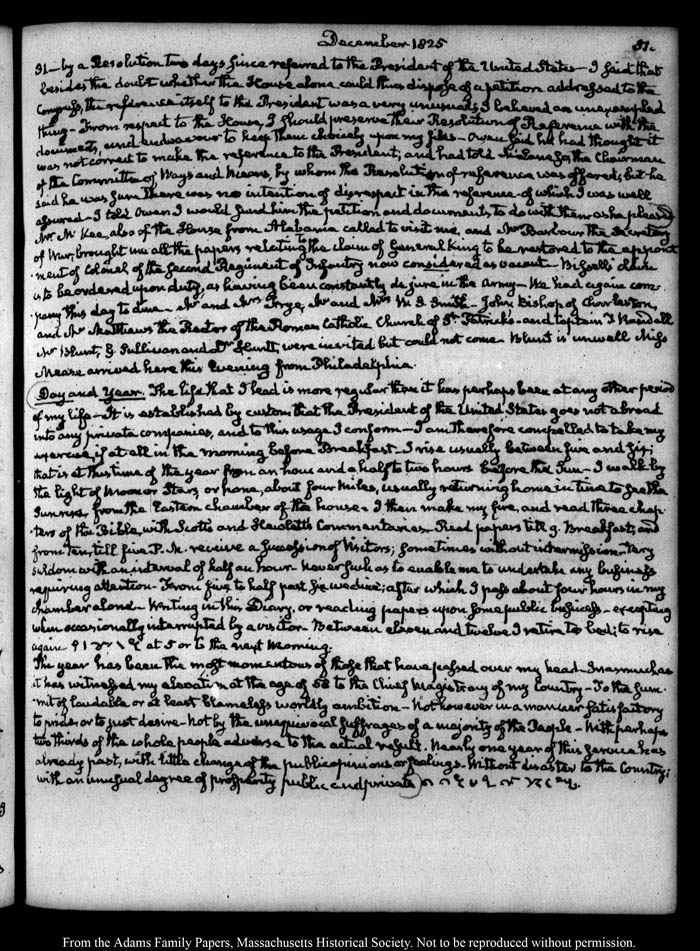 December 1825
31.
31—by a Resolution two days since referred to the President of the United States—I said that
besides the doubt whether the House alone could thus dispose of a petition addressed to the
Congress, the reference itself to the President was a very unusual, I believed an unexampled
thing—From respect to the House, I should preserve their Resolution of Reference with the
documents, and endeavour to keep them choicely upon my files—Owen said he had thought it
was not correct to make the reference to the President; and had told the Chairman
of the Committee of Ways and Means, by whom the Resolution of reference was offered; but he
said he was sure there was no intention of disrespect in the reference—of which I was well
assured—I told Owen I would send him the petition and documents, to do with them as he pleased
Mr. McKee, also of the House from Alabama called to visit me, and Mr. Barbour the Secretary
of War, brought me all the papers relating to the claim of General King to be restored to the appoint
-ment of Colonel of the Second Regiment of Infantry now considered as vacant—Bissell's claim
is to be ordered upon duty, as having been constantly de jure in the Army—We had again com-
pany this day to dine—Mr. and Mrs. Frye, Mr. and Mrs. W. S. Smith—John Bishop of Charleston,
and Mr. Matthews the Rector of the Roman Catholic Church of St. Patrick's—and Captain T Randall
Mr. Blunt, G Sullivan and Dr. Huntt, were invited but could not come—Blunt is unwell Miss
Mease arrived here this Evening from Philadelphia.
Day and Year. The life that I lead is more regular than it has perhaps been at any other period
of my life—It is established by custom that the President of the United States goes not abroad
into any private companies, and to this usage I conform—I am therefore compelled to take my
exercise, if at all in the morning before Breakfast—I rise usually between five and six;
that is at this time of the year from an hour and a half to two hours before the Sun—I walk by
the light of Moon or Stars, or none, about four Miles, usually returning home in time to see the
Sun rise, from the Eastern chamber of the house—I then make my fire, and read three chap-
ters of the Bible, with Scott's and Hewlett's Commentaries—Read papers till 9. Breakfast; and
from ten, till five P.M. receive a succession of Visitors; sometimes without intermission—Very
seldom with an interval of half an hour—never such as to enable me to undertake any business
requiring attention—From five to half past six we dine; after which I pass about four hours in my
chamber alone—Writing in this Diary, or reading papers upon some public business—excepting
when occasionally interrupted by a visitor—Between eleven and twelve I retire to bed; to rise
again at 5 or 6 the next Morning.
The year has been the most momentous of those that have passed over my head—Inasmuch as
it has witnessed my elevation at the age of 58 to the Chief Magistracy of my Country—To the sum-
-mit of laudable or at least blameless worldly ambition—Not however in a manner satisfactory
to pride, or to just desire—Not by the unequivocal suffrages of a majority of the People—With perhaps
two thirds of the whole people adverse to the actual result. Nearly one year of this service has
already past, with little change of the public opinions or feelings. Without disaster to the Country;
with an unusual degree of prosperity public and private
From the Adams Family Papers, Massachusetts Historical Society. Not to be reproduced without permission.